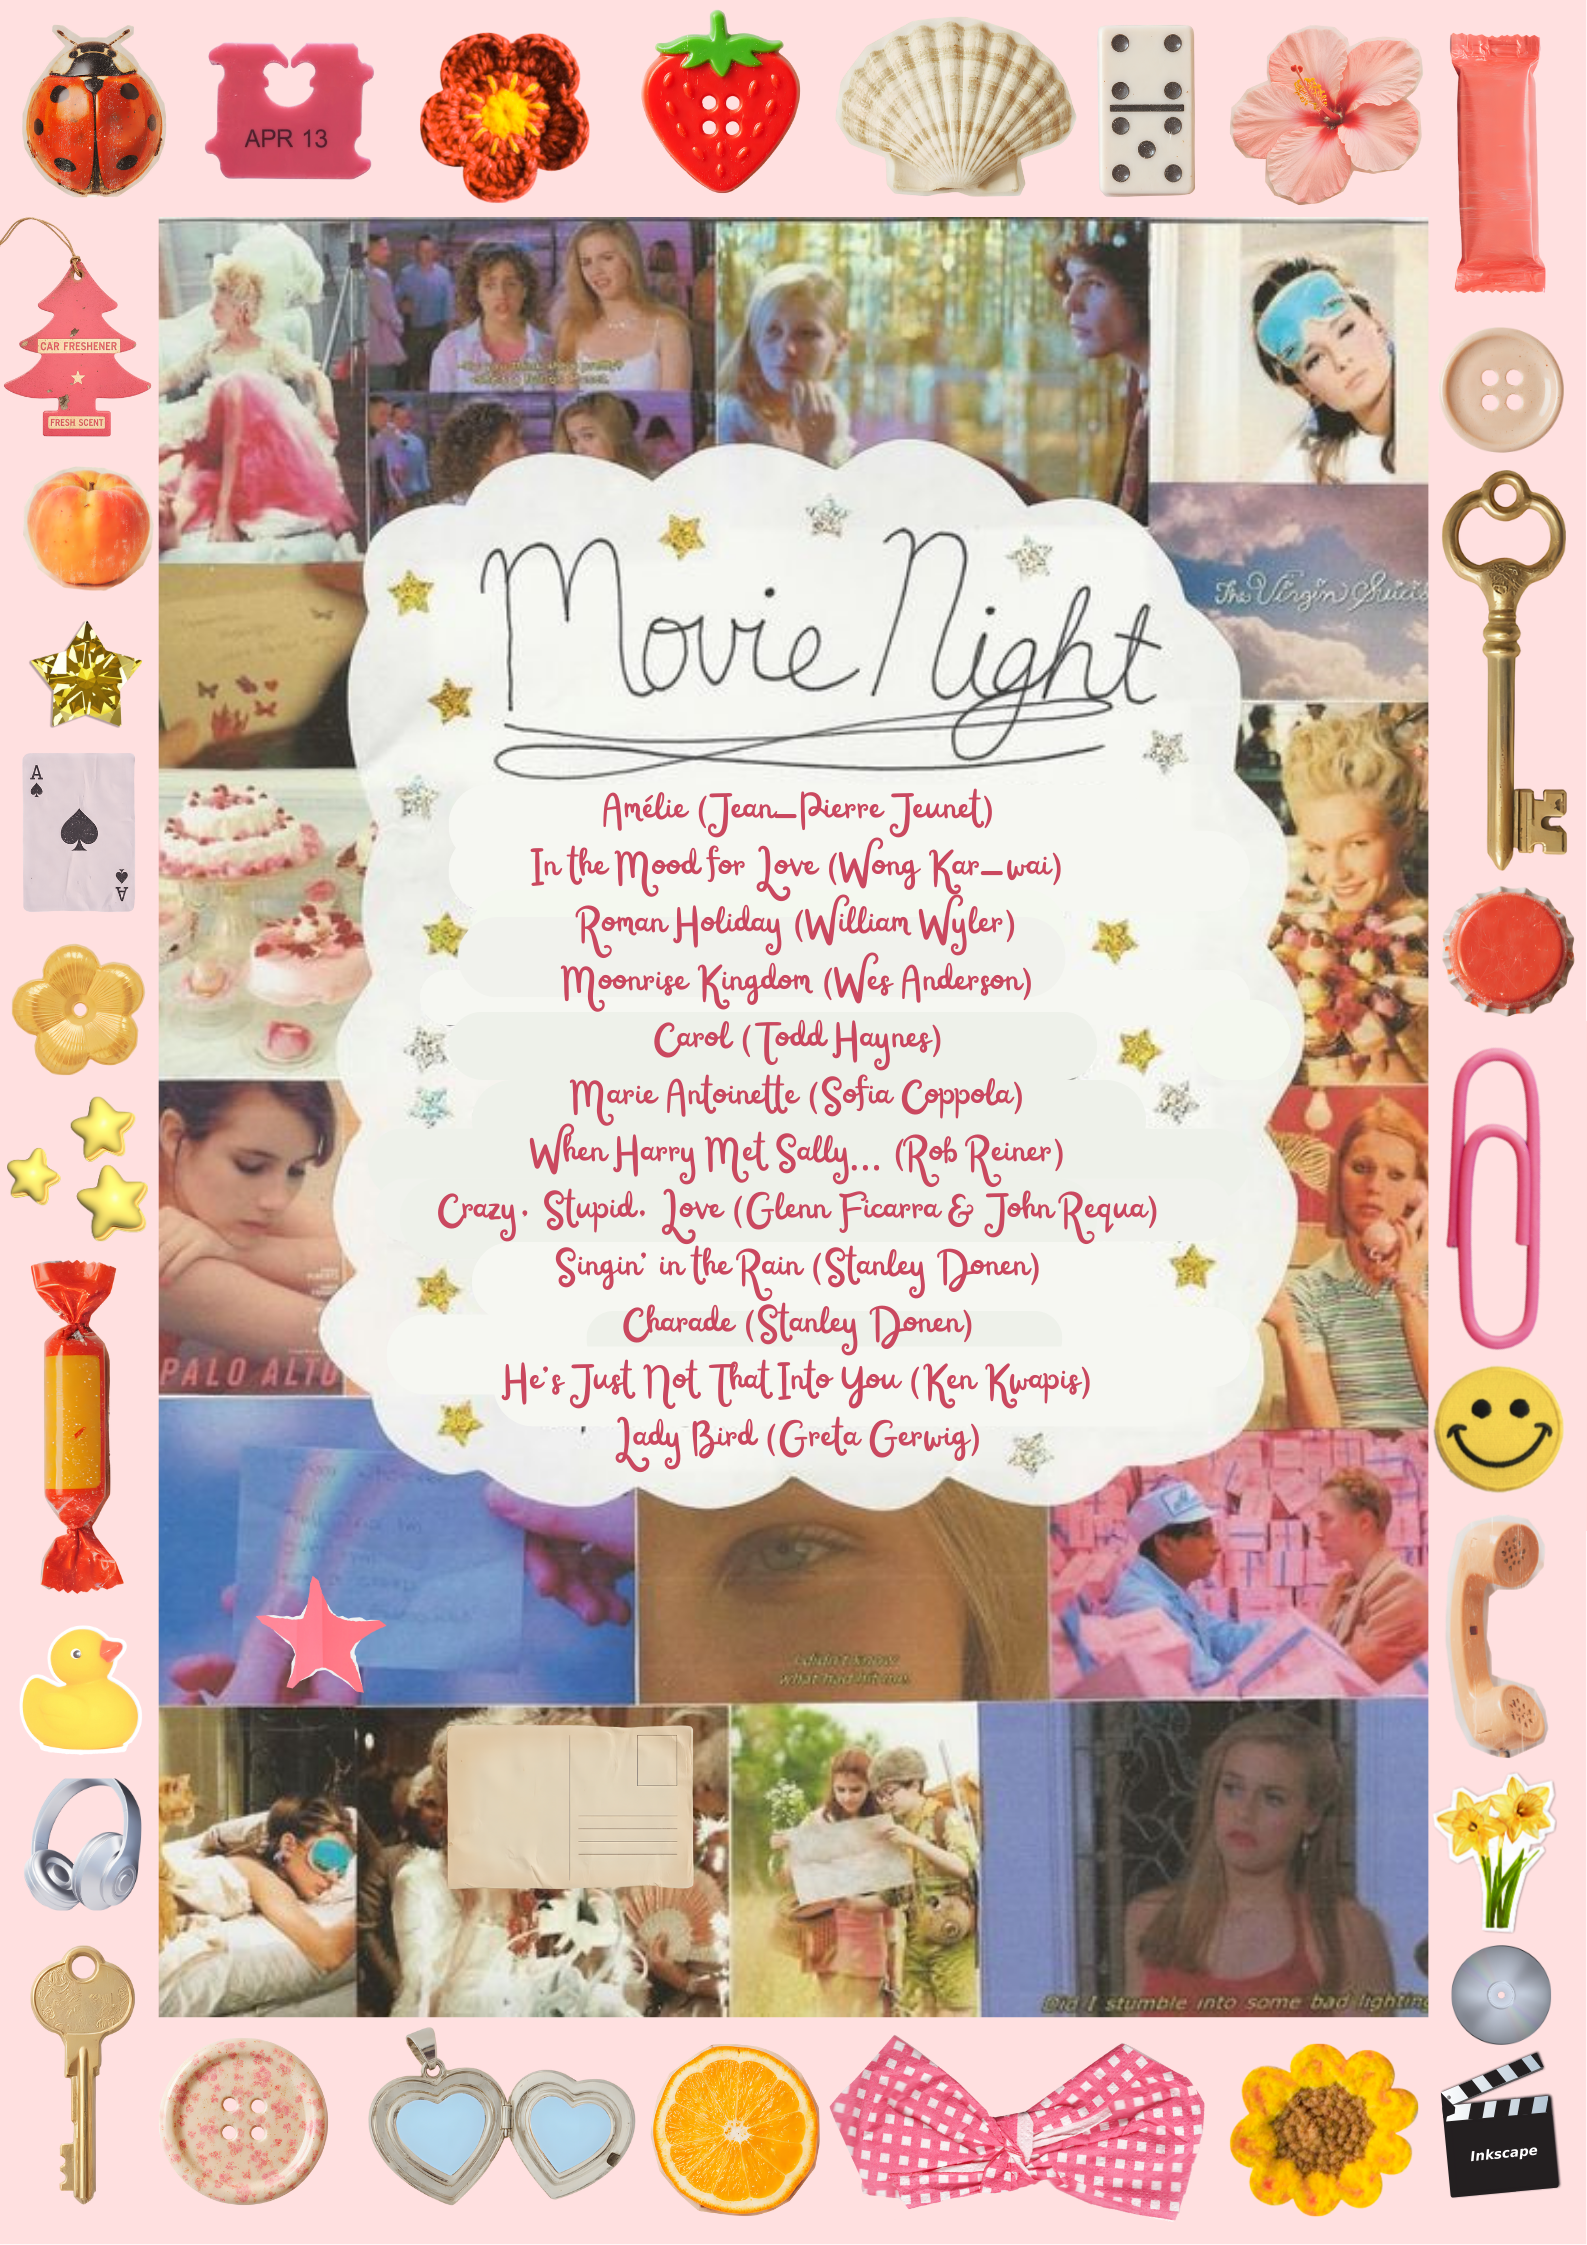 APR 13
CAR FRESHENER
FRESH SCENT
The Virgin
Movie Night
A
A
Amélie (Jean-Pierre Jeunet)
In the Mood for Love (Wong Kar-wai)
Roman Holiday (William Wyler)
Moonrise Kingdom (Wes Anderson)
Carol (Todd Haynes)
Marie Antoinette (Sofia Coppola)
When Harry Met Sally... (Rob Reiner)
Crazy. Stupid. Love (Glenn Ficarra & John Requa)
Singin' in the Rain (Stanley Donen)
Charade (Stanley Donen)
He's Just Not That Into You (Ken Kwapis)
Lady Bird (Greta Gerwig)
PALO ALTO
I didn't know
what had hit me.
Did I stumble into some bad lighting
Inkscape